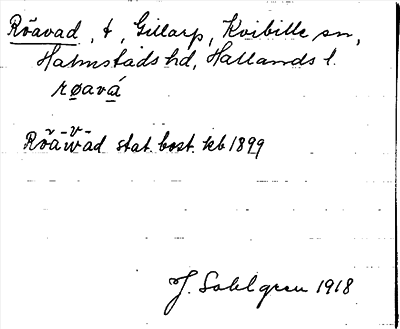 Röavad, t, Gillarp, Kvibille sn,
Halmstads hd, Hallands l.
røavá
Röawad stat. bost. kb 1899
J. Sahlgren 1918